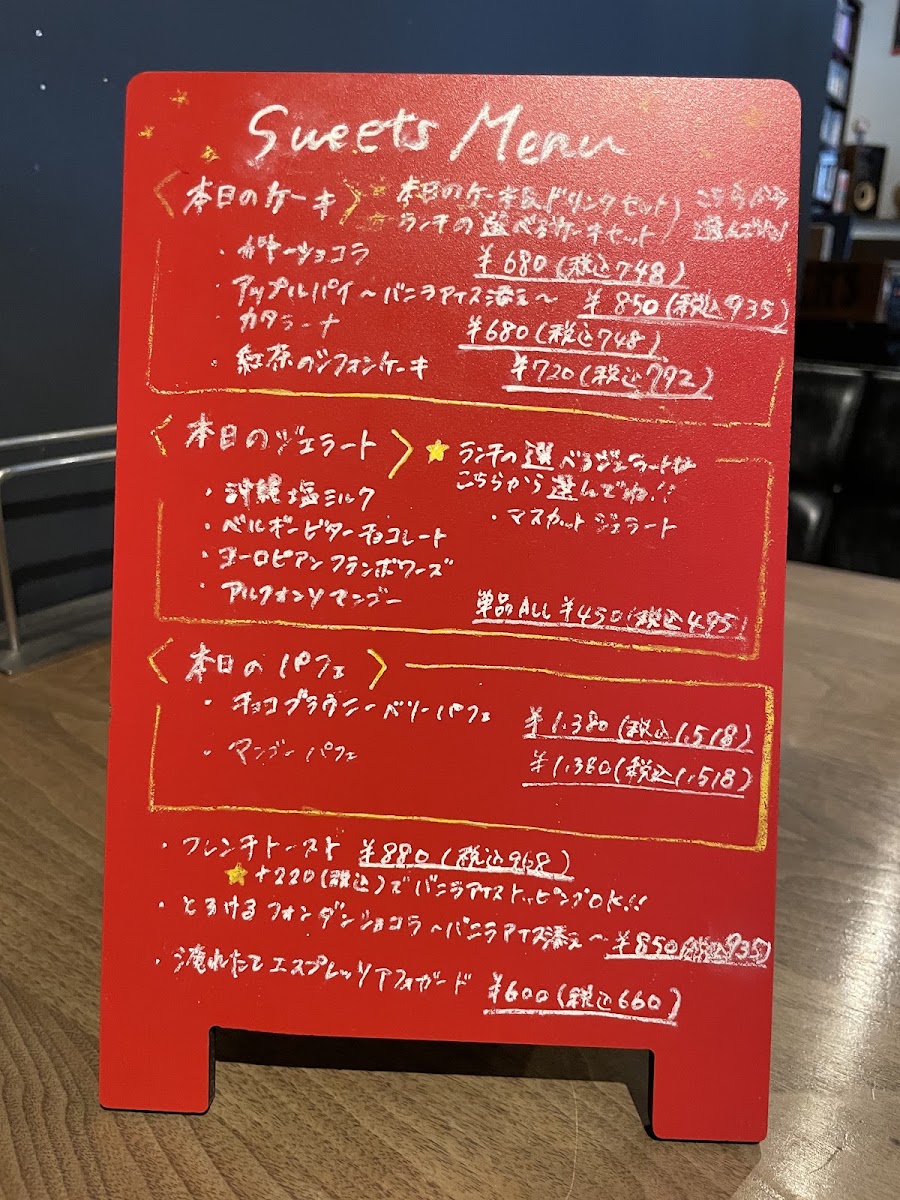 Sweets Menu
〈本日のケーキ〉
☆本日のケーキ&ドリンクセット
☆ランチの選べるケーキセット
こちらから
選んでね!
・ガトーショコラ ¥680(税込748)
・アップルパイ〜バニラアイス添え〜 ¥850(税込935)
・カタラーナ ¥680(税込748)
・紅茶のシフォンケーキ ¥720(税込792)
〈本日のジェラート〉
★ランチの選べるジェラートは
こちらから選んでね!!
・沖縄塩ミルク
・マスカットジェラート
・ベルギービターチョコレート
・ヨーロピアンフランボワーズ
・アルフォンソマンゴー
単品ALL ¥450(税込495)
〈本日のパフェ〉
・チョコブラウニーベリーパフェ ¥1.380(税込1.518)
・マンゴーパフェ ¥1.380(税込1.518)
・フレンチトースト ¥880(税込968)
★+220(税込)でバニラアイストッピングOK!!
・とろけるフォンダンショコラ〜バニラアイス添え〜 ¥850(税込935)
・淹れたてエスプレッソアフォガード ¥600(税込660)